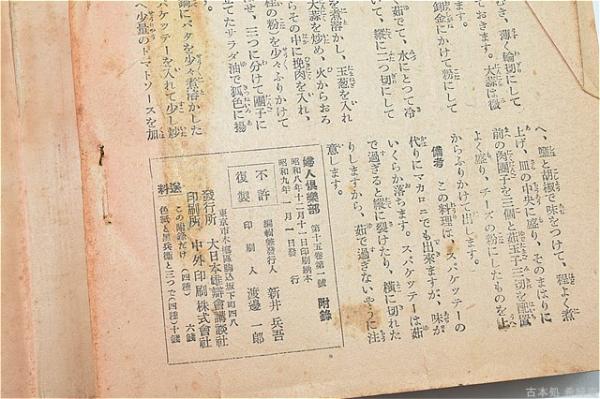 むき、薄く輪切にして
おきます。大蒜は微
卸金にかけて粉にして
ます。
茹でて、水にとつて冷
いて、縦に二つ切にして
を煮溶かし、玉葱を入れ
大蒜を炒め、火からおろ
らその中に挽肉を入れ、
桂の粉)を少々ふりかけて
せ、三つに分けて團子に
立てたサラダ油で狐色に揚
鍋にバタを少々煮溶かした
スパケッテーを入れて少し炒
へ少量のトマトソースを加
へ、鹽と胡椒で味をつけて、程よく煮
上げ、皿の中央に盛り、そのまはりに
前の肉團子を三個と茹玉子三切を配置
よく盛り、チーズの粉にしたものを上
からふりかけて出します。
備考 この料理は、スパケッテーの
代りにマカロニでも出來ますが、味が
いくらか落ちます。スパケッテーは茹
で過ぎると縦に裂けたり、横に切れた
りしますから、茹で過ぎないやうに注
意します。
婦人俱樂部 第十五卷第一號 附錄
昭和八年十二月十一日印刷納本
昭和九年一月一日發行
不許
復製
編輯兼發行人 新井兵吾
印刷人 渡邊一郎
東京市本鄕區駒込坂下町四八
發行所 大日本雄辯會講談社
印刷所 中外印刷株式會社
送料
この附錄だけ(四種) 六錢
色紙と黑兵衞と三つで(四種)十錢
古本処